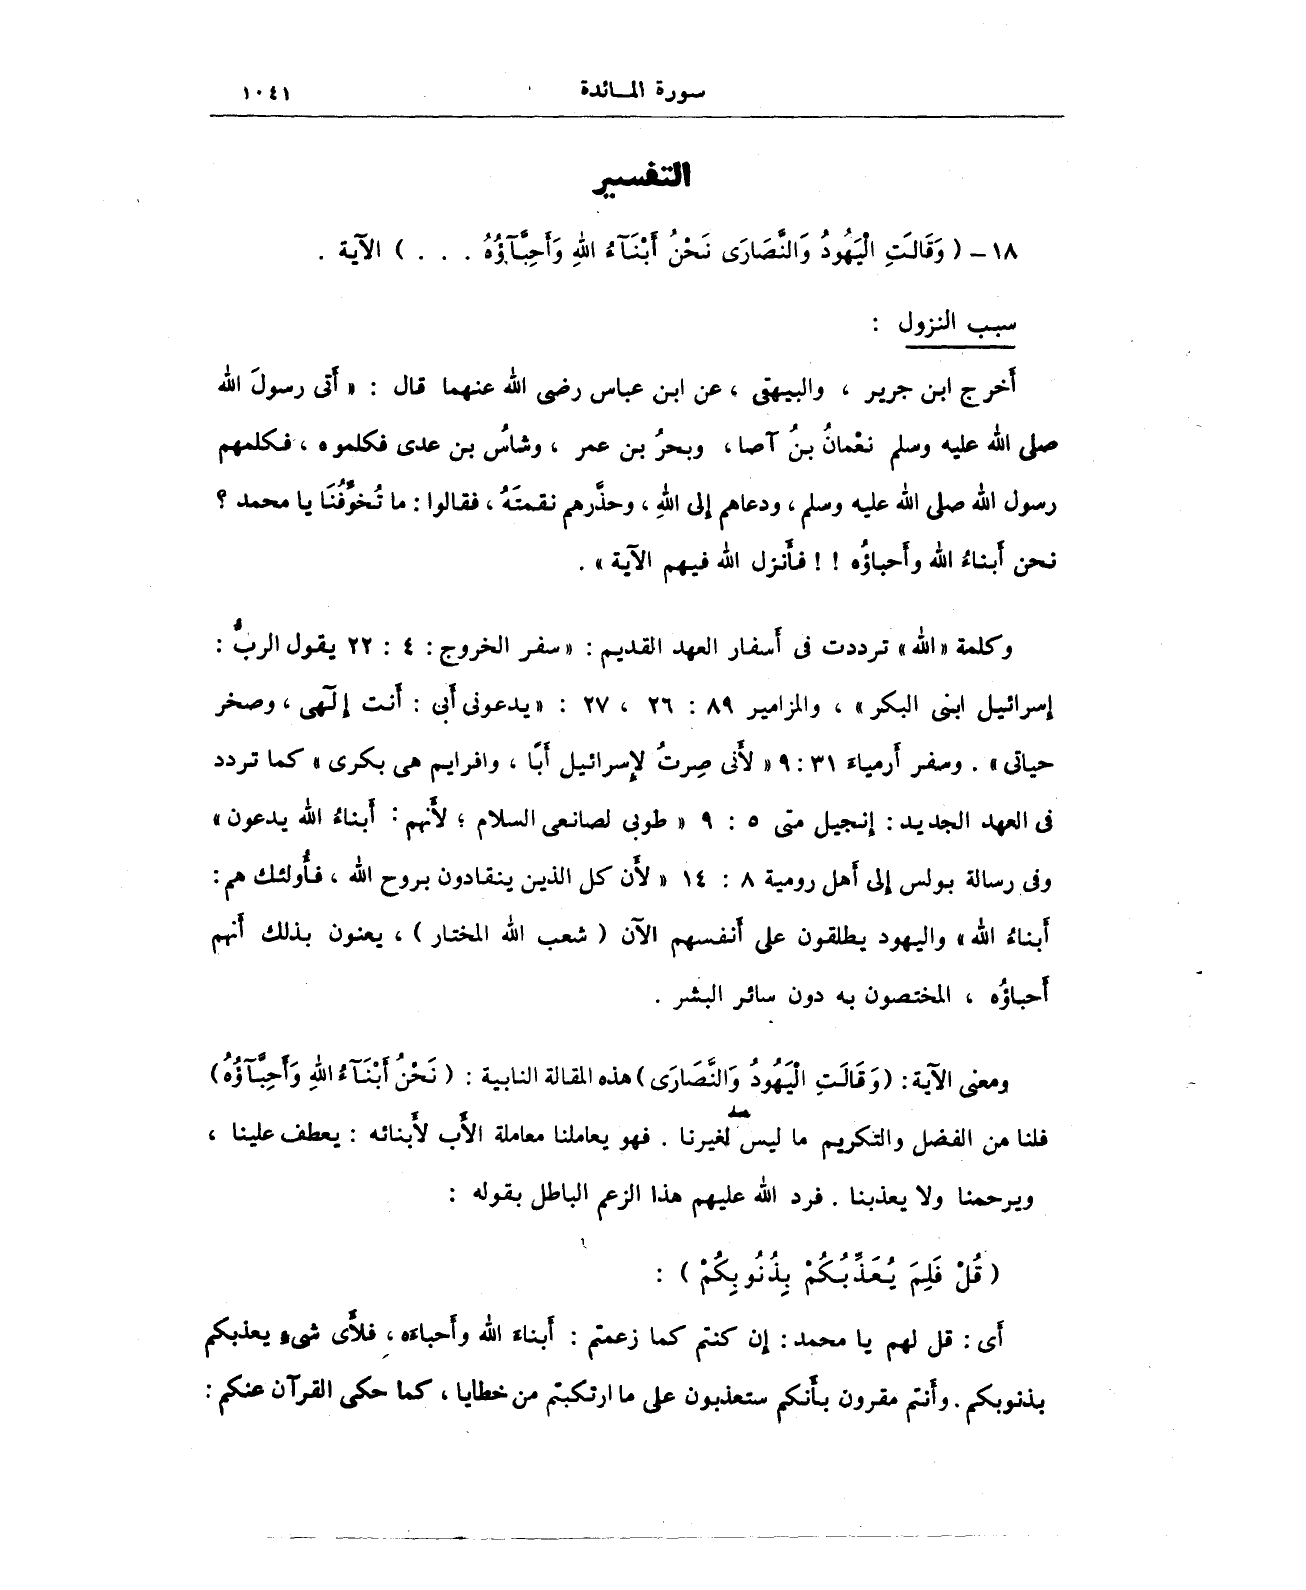 سورة المائدة ١٠٤١
التفسير
١٨ – ( وَقَالَتِ الْيَهُودُ وَالنَّصَارَى نَحْنُ أَبْنَآءُ اللهِ وَأَحِبَّآؤُهُ . . . ) الآية .
سبب النزول :
أَخرج ابن جرير ، والبيهقى ، عن ابن عباس رضى الله عنهما قال : « أَتى رسولَ الله
صلى الله عليه وسلم نعْمانُ بنُ آصا ، وبحرُ بن عمر ، وشاسُ بن عدى فكلموه ، فكلمهم
رسول الله صلى الله عليه وسلم ، ودعاهم إلى اللهِ ، وحذَّرهم نقمتَهُ ، فقالوا : ما تُخوِّفُنَا يا محمد ؟
نحن أَبناءُ الله وأَحباؤُه ! ! فأَنزل الله فيهم الآية » .
وكلمة «الله» ترددت فى أَسفار العهد القديم : « سفر الخروج : ٤ : ٢٢ يقول الربُّ :
إسرائيل ابنى البكر » ، والمزامير ٨٩ : ٢٦ ، ٢٧ : « يدعونى أَبى : أَنت إلَهى ، وصخر
حياتى » . وسفر أَرمياء ٣١ : ٩ « لأَنى صِرتُ لإسرائيل أَبًا ، وافرايم هى بكرى » كما تردد
فى العهد الجديد : إنجيل متى ٥ : ٩ « طوبى لصانعى السلام ؛ لأَنهم : أَبناءُ الله يدعون »
وفى رسالة بولس إلى أَهل رومية ٨ : ١٤ « لأَن كل الذين ينقادون بروح الله ، فأُولئك هم :
أَبناءُ الله » واليهود يطلقون على أَنفسهم الآن ( شعب الله المختار ) ، يعنون بذلك أَنهم
أَحباؤُه ، المختصون به دون سائر البشر .
ومعنى الآية : ( وَقَالَتِ الْيَهُودُ وَالنَّصَارَى ) هذه المقالة النابية : ( نَحْنُ أَبْنَآءُ اللهِ وَأَحِبَّآؤُهُ )
فلنا من الفضل والتكريم ما ليس لغيرنا . فهو يعاملنا معاملة الأَب لأَبنائه : يعطف علينا ،
ويرحمنا ولا يعذبنا . فرد الله عليهم هذا الزعم الباطل بقوله :
( قُلْ فَلِمَ يُعَذِّبُكُمْ بِذُنُوبِكُمْ ) :
أَى : قل لهم يا محمد : إن كنتم كما زعمتم : أَبناءَ الله وأَحباءَه ، فلأَى شىءٍ يعذبكم
بذنوبكم . وأَنتم مقرون بأَنكم ستعذبون على ما ارتكبتم من خطايا ، كما حكى القرآن عنكم :